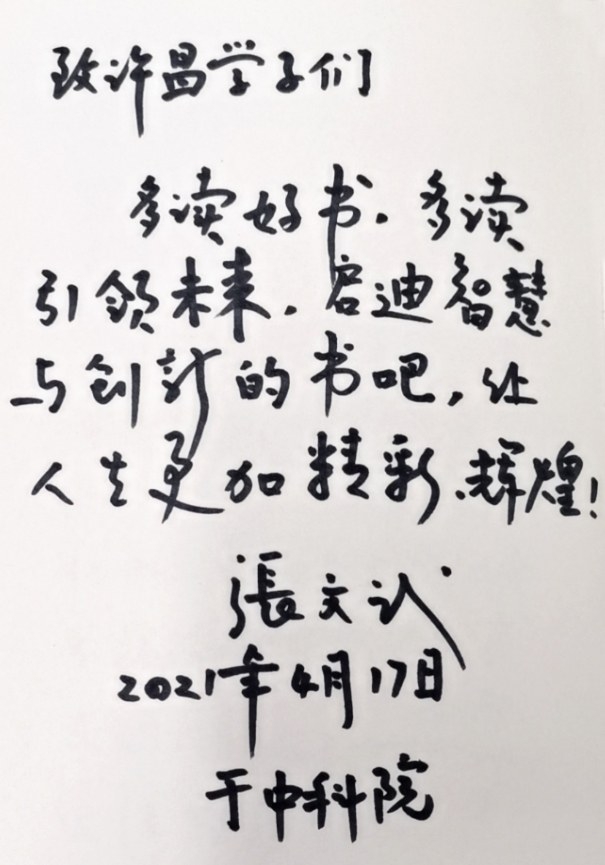 致许昌学子们
多读好书.多读
引領未来.启迪智慧
与创新的书吧,让
人生更加精彩、辉煌!
張文武
2021年4月17日
于中科院